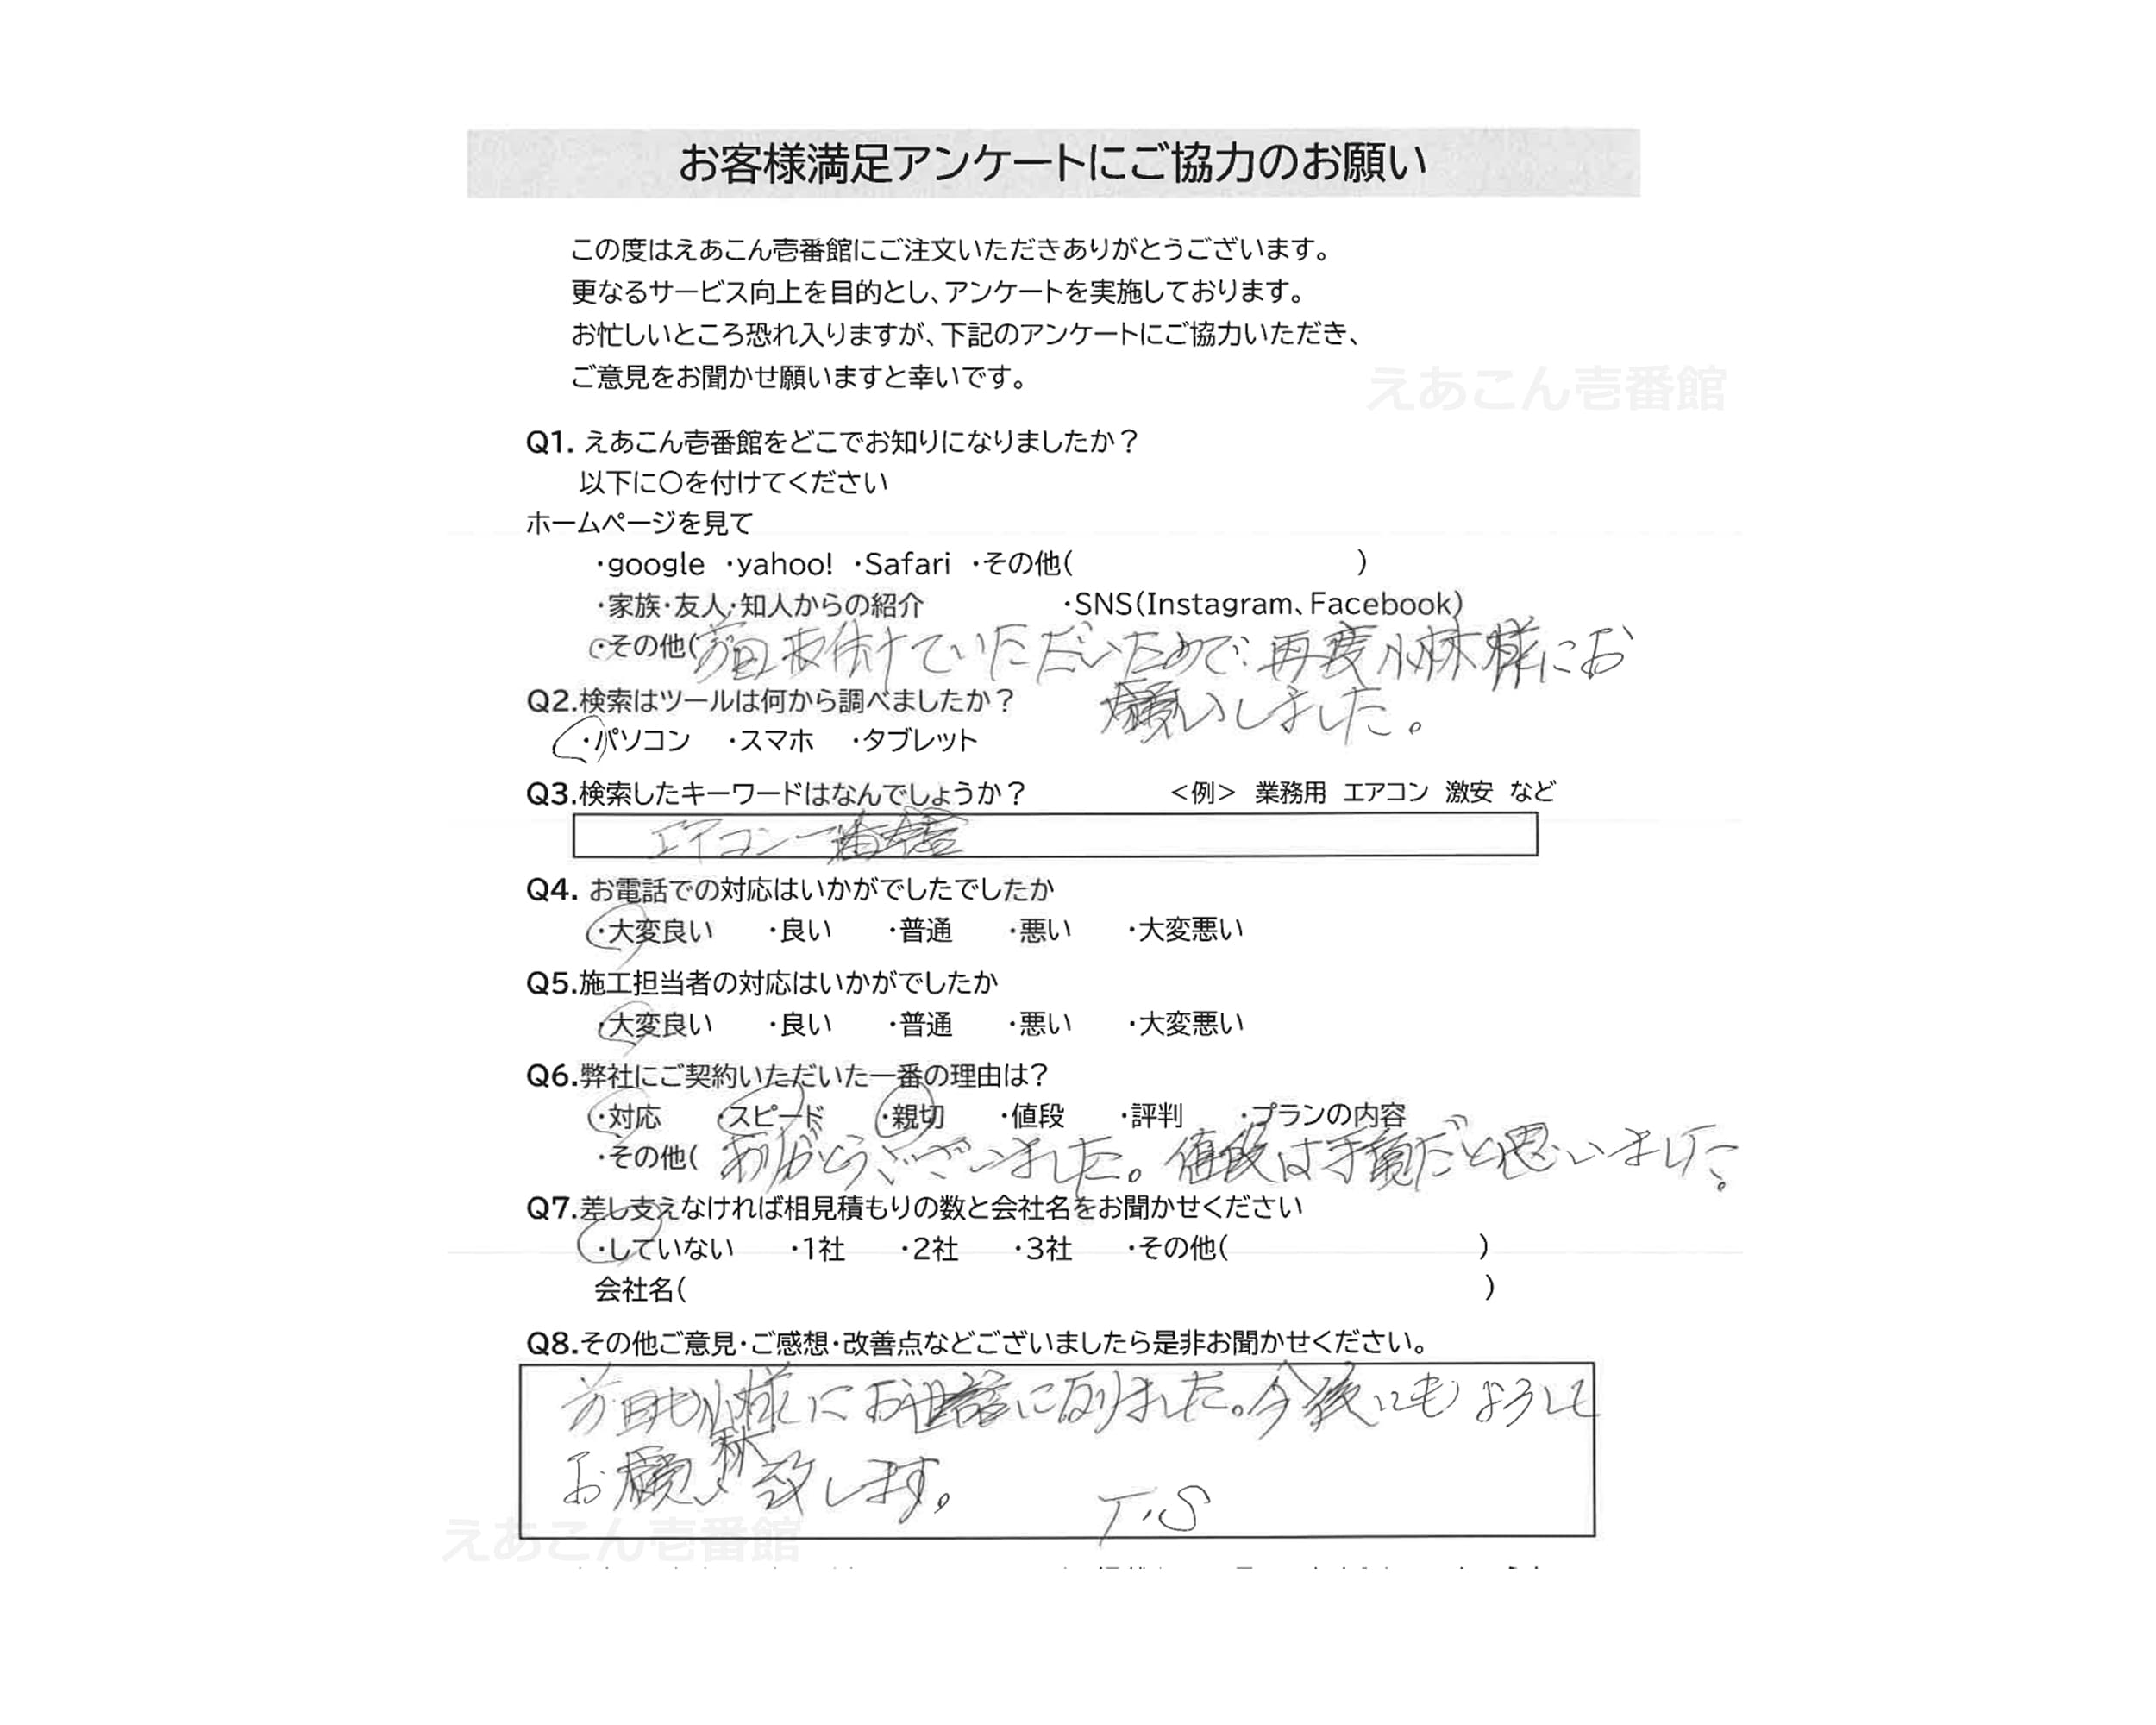 お客様満足アンケートにご協力のお願い
この度はえあこん壱番館にご注文いただきありがとうございます。
更なるサービス向上を目的とし、アンケートを実施しております。
お忙しいところ恐れ入りますが、下記のアンケートにご協力いただき、
ご意見をお聞かせ願いますと幸いです。
えあこん壱番館
Q1. えあこん壱番館をどこでお知りになりましたか？
以下に〇を付けてください
ホームページを見て
・google ・yahoo! ・Safari ・その他( )
・家族・友人・知人からの紹介 ・SNS(Instagram、Facebook)
・その他( 付けていただいたので、再度小林様にお
願いしました。
Q2.検索はツールは何から調べましたか？
・パソコン ・スマホ ・タブレット
Q3.検索したキーワードはなんでしょうか？ <例> 業務用 エアコン 激安 など
エアコン一番館
Q4. お電話での対応はいかがでしたでしたか
・大変良い ・良い ・普通 ・悪い ・大変悪い
Q5.施工担当者の対応はいかがでしたか
・大変良い ・良い ・普通 ・悪い ・大変悪い
Q6.弊社にご契約いただいた一番の理由は？
・対応 ・スピード ・親切 ・値段 ・評判 ・プランの内容
・その他( ありがとうございました。値段は手頃だと思いました。
Q7.差し支えなければ相見積もりの数と会社名をお聞かせください
・していない ・1社 ・2社 ・3社 ・その他( )
会社名( )
Q8.その他ご意見・ご感想・改善点などございましたら是非お聞かせください。
前回も小林様にお世話になりました。今後にもよろしく
お願い致します。
T.S
えあこん壱番館